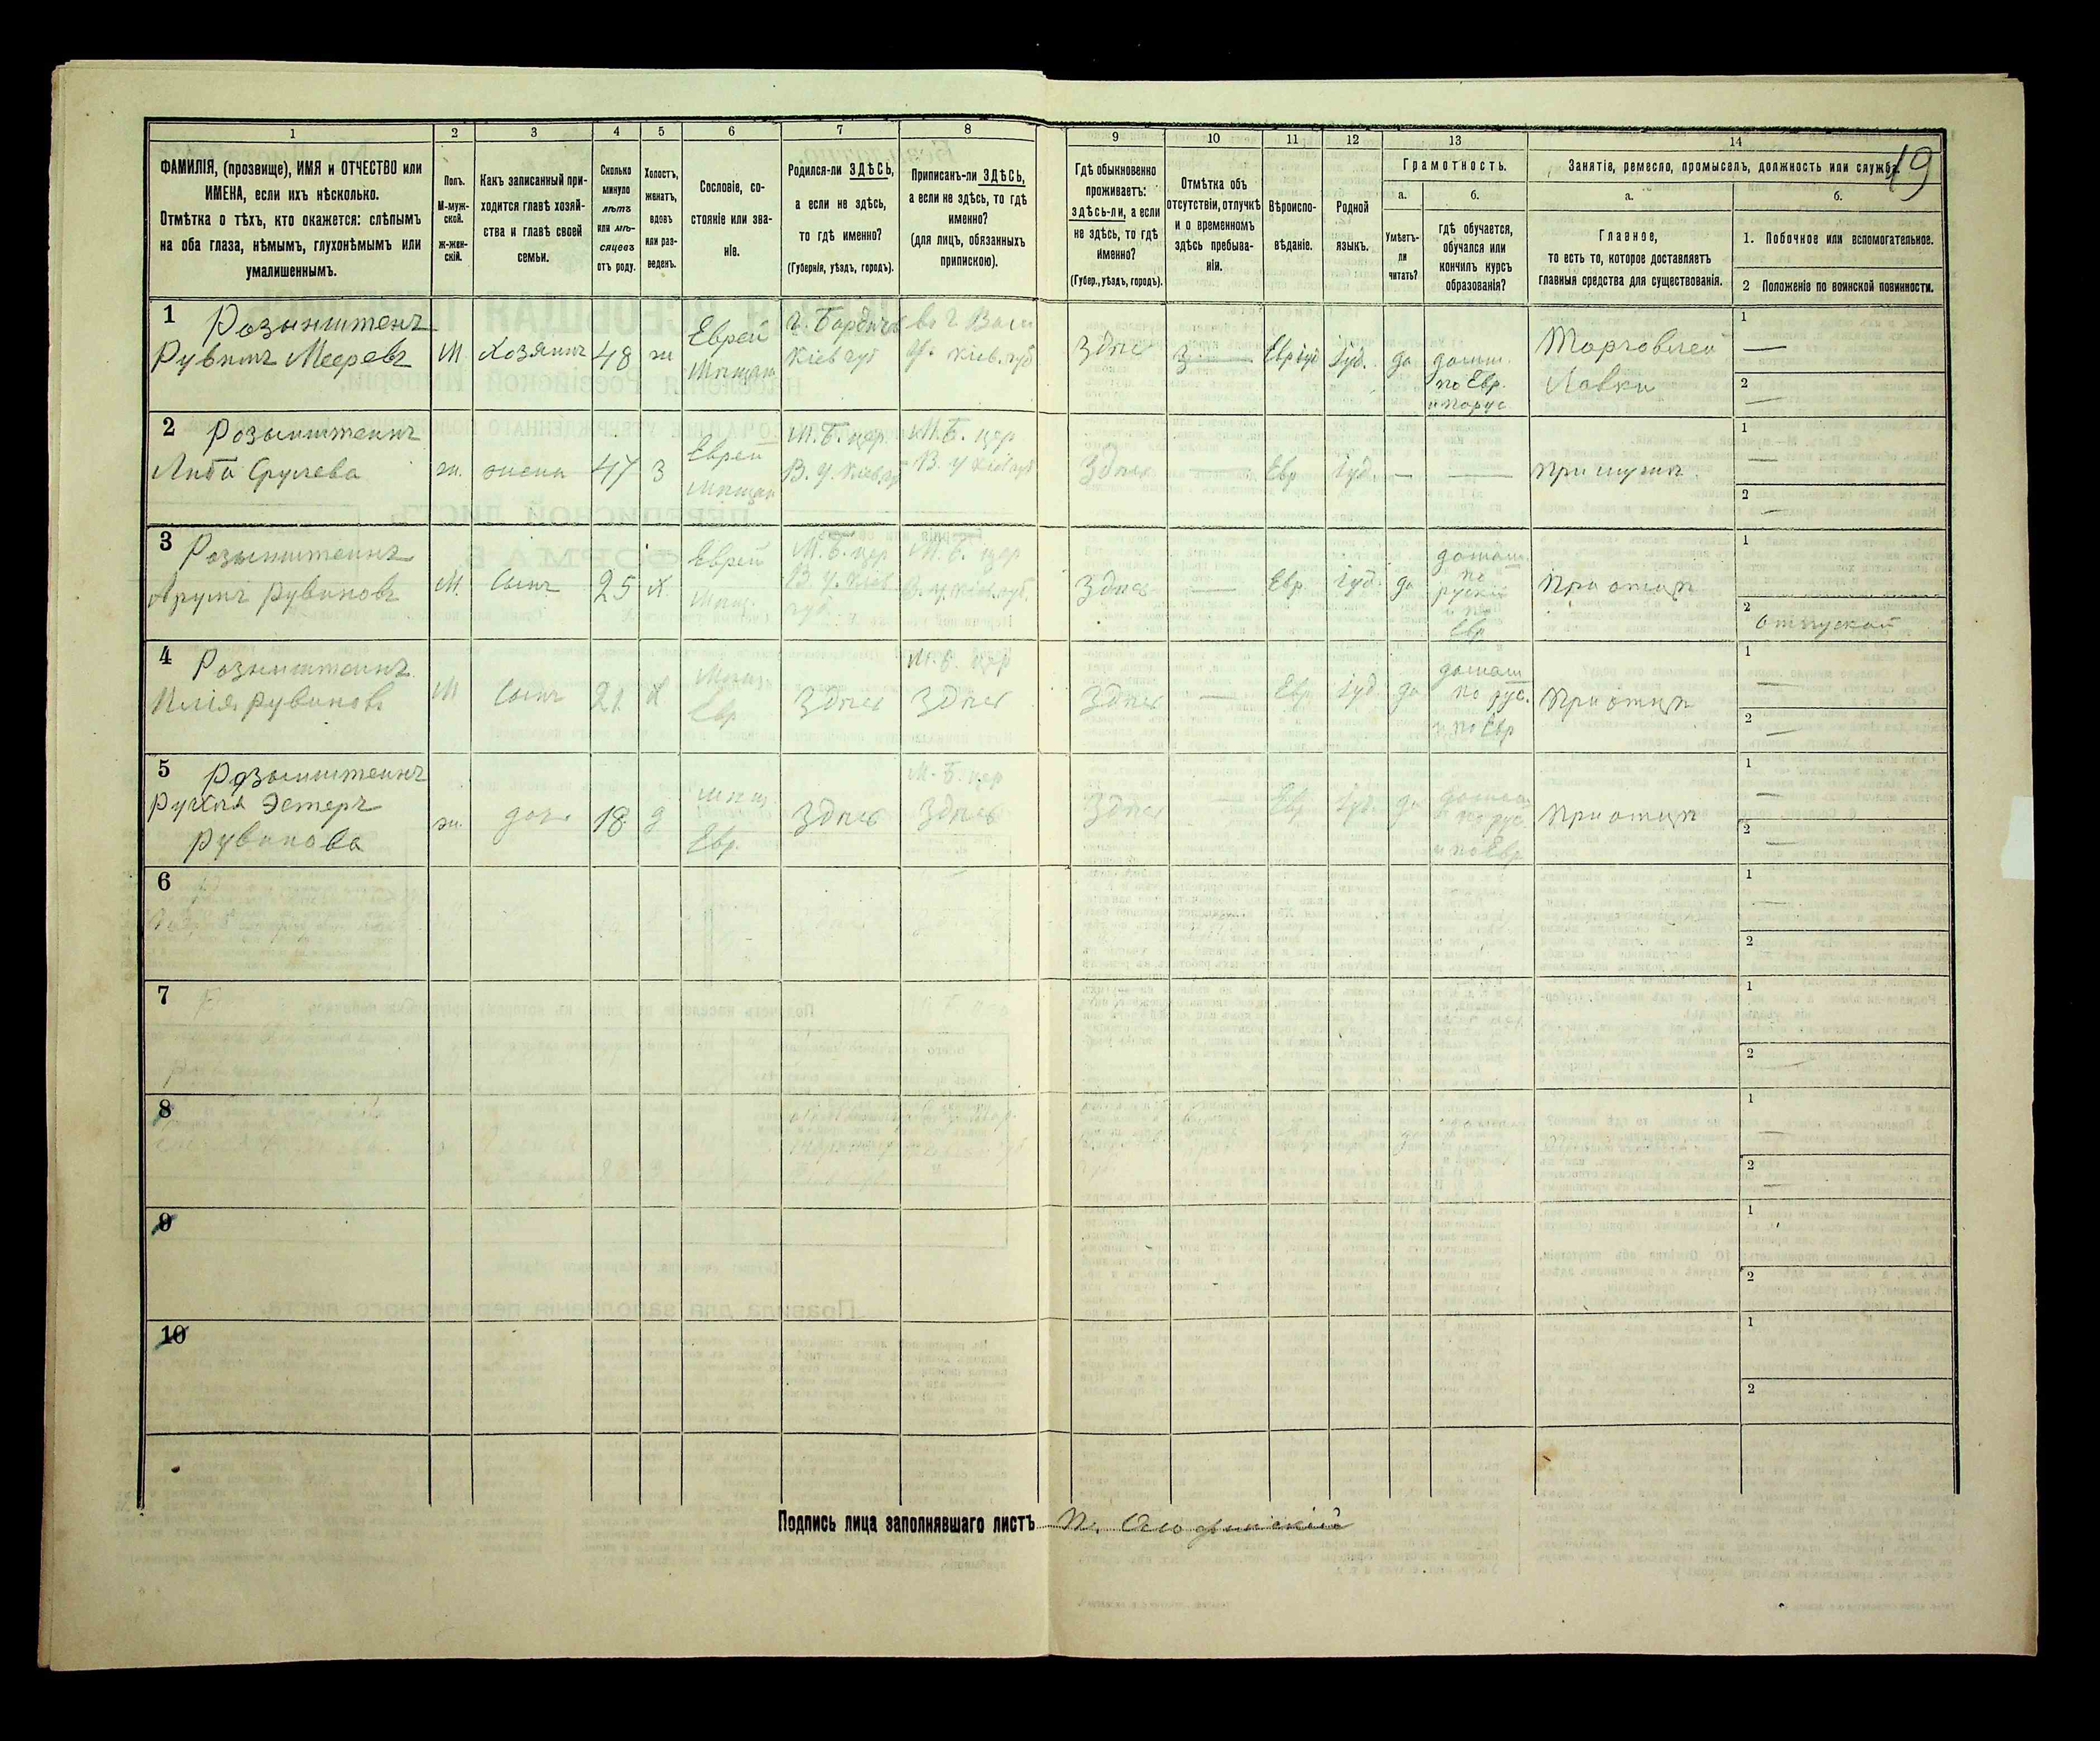 19
1
2
3
4
5
6
7
8
9
10
11
12
13
14
ФАМИЛІЯ, (прозвище), ИМЯ и ОТЧЕСТВО или
ИМЕНА, если ихъ нѣсколько.
Отмѣтка о тѣхъ, кто окажется: слѣпымъ
на оба глаза, нѣмымъ, глухонѣмымъ или
умалишеннымъ.
Полъ.
М-муж-
ской.
ж-жен-
скій.
Какъ записанный при-
ходится главѣ хозяй-
ства и главѣ своей
семьи.
Сколько
минуло
лѣтъ
или мѣ-
сяцевъ
отъ роду.
Холостъ,
женатъ,
вдовъ
или раз-
веденъ.
Сословіе, со-
стояніе или зва-
ніе.
Родился-ли ЗДѢСЬ,
а если не здѣсь,
то гдѣ именно?
(Губернія, уѣздъ, городъ).
Приписанъ-ли ЗДѢСЬ,
а если не здѣсь, то гдѣ
именно?
(для лицъ, обязанныхъ
припискою).
Гдѣ обыкновенно
проживаетъ:
здѣсь-ли, а если
не здѣсь, то гдѣ
именно?
(Губер., уѣздъ, городъ).
Отмѣтка объ
отсутствіи, отлучкѣ
и о временномъ
здѣсь пребыва-
ніи.
Вѣроиспо-
вѣданіе.
Родной
языкъ.
Грамотность.
а.
Умѣетъ-
ли
читать?
б.
гдѣ обучается,
обучался или
кончилъ курсъ
образованія?
Занятіе, ремесло, промыселъ, должность или служба.
а.
Главное,
то есть то, которое доставляетъ
главныя средства для существованія.
б.
1. Побочное или вспомогательное.
2 Положеніе по воинской повинности.
1
Розынштенъ
Рувинъ Мееровъ
М
Хозяинъ
48
ж
Еврей
Мѣщан
г. Бардичъ
Кіев губ
в. г Васи
У. Кіев. губ
Здѣсь
Іуд.
да
домаш.
по Евр.
и порус
Торговлей
Лавки
1
2
2
Розынштеинъ
Либа Срулева
ж.
жена
47
З
Еврей
Мѣщан
М. Б. цер.
В. У. Кіев. губ
М. Б. цер
В. У Кіев губ
Здѣсь
Евр
Іуд.
При мужѣ
1
2
3
Розынштеинъ
Рувиновъ
М.
Сынъ
25
Х.
Еврей
Мѣщ.
М. Б. цер
В. У. Кіев
губ.
М. Б. цер
В. У. Кіев. губ.
Здѣсь
Евр.
Іуд.
да
домаш.
по
рускій
и по
Евр
При отцѣ
1
2
4
Розынштеинъ
Рувиновъ
М
Сынъ
21
Х
Мѣщ.
Евр
Здѣсь
М. Б. цер
Здѣсь
Здѣсь
Евр
Іуд
да
домаш
по рус.
и по Евр
При отцѣ
1
2
5
Розынштеинъ
Рухля Эстеръ
Рувинова
ж.
доч.
18
д
Мѣщ.
Евр.
Здѣсь
М. Б. цер
Здѣсь
Здѣсь
Евр
Іуд.
да
домаш
по рус.
и по Евр
При отцѣ
1
2
6
1
2
7
1
2
8
1
2
9
1
2
10
1
2
Подпись лица заполнявшаго листъ